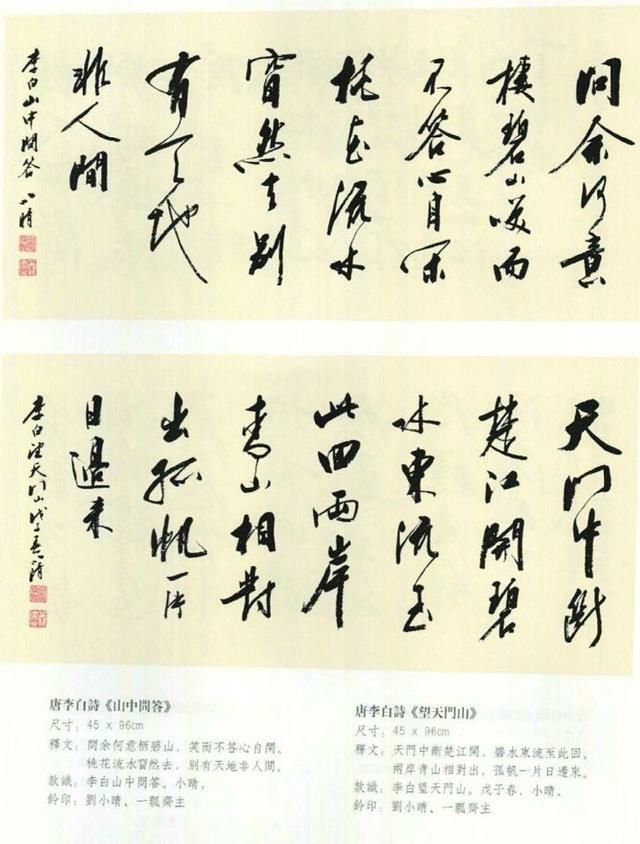 問余何意
棲碧山笑而
不答心自閑
桃花流水
窅然去別
有天地
非人間
李白山中問答 小晴
天門中斷
楚江開碧
水東流至
此回兩岸
青山相對
出孤帆一片
日邊來
李白望天門山戊子春小晴
唐李白詩《山中問答》
尺寸：45 x 96cm
釋文：問余何意栖碧山，笑而不答心自閑。
桃花流水窅然去，別有天地非人間。
款識：李白山中問答。小晴。
鈐印：劉小晴、一瓢齋主
唐李白詩《望天門山》
尺寸：45 x 96cm
釋文：天門中斷楚江開，碧水東流至此回。
兩岸青山相對出，孤帆一片日邊來。
款識：李白望天門山。戊子春，小晴。
鈐印：劉小晴、一瓢齋主